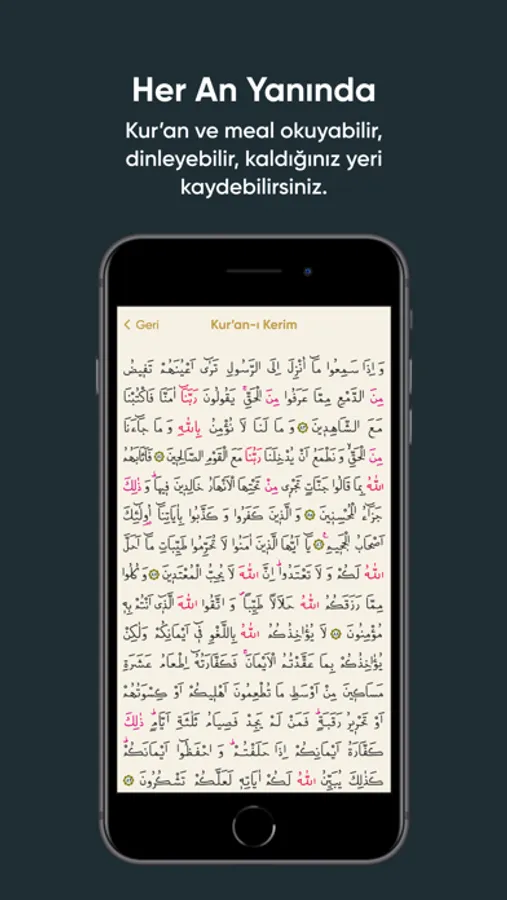 Her An Yanında
Kur'an ve meal okuyabilir,
dinleyebilir, kaldığınız yeri
kaydebilirsiniz.
Geri
Kur'an-ı Kerim
وَاِذَا سَمِعُوا مَٓا اُنْزِلَ اِلَى الرَّسُولِ تَرٰٓى اَعْيُنَهُمْ تَفٖيضُ
مِنَ الدَّمْعِ مِمَّا عَرَفُوا مِنَ الْحَقِّۚ يَقُولُونَ رَبَّنَٓا اٰمَنَّا فَاكْتُبْنَا
مَعَ الشَّاهِدٖينَ وَمَا لَنَا لَا نُؤْمِنُ بِاللّٰهِ وَمَا جَٓاءَنَا
مِنَ الْحَقِّۙ وَنَطْمَعُ اَنْ يُدْخِلَنَا رَبُّنَا مَعَ الْقَوْمِ الصَّالِحٖينَ فَاَثَابَهُمُ
اللّٰهُ بِمَا قَالُوا جَنَّاتٍ تَجْرٖي مِنْ تَحْتِهَا الْاَنْهَارُ خَالِدٖينَ فٖيهَاۜ وَذٰلِكَ
جَزَٓاءُ الْمُحْسِنٖينَ وَالَّذٖينَ كَفَرُوا وَكَذَّبُوا بِاٰيَاتِنَٓا اُو۬لٰٓئِكَ
اَصْحَابُ الْجَحٖيمِ۟ يَٓا اَيُّهَا الَّذٖينَ اٰمَنُوا لَا تُحَرِّمُوا طَيِّبَاتِ مَٓا اَحَلَّ
اللّٰهُ لَكُمْ وَلَا تَعْتَدُواۜ اِنَّ اللّٰهَ لَا يُحِبُّ الْمُعْتَدٖينَ وَكُلُوا
مِمَّا رَزَقَكُمُ اللّٰهُ حَلَالًا طَيِّبًاۖ وَاتَّقُوا اللّٰهَ الَّـذٖٓي اَنْتُمْ بِهٖ
مُؤْمِنُونَ لَا يُؤَاخِذُكُمُ اللّٰهُ بِاللَّغْوِ فٖٓي اَيْمَانِكُمْ وَلٰكِنْ
يُؤَاخِذُكُمْ بِمَا عَقَّدْتُمُ الْاَيْمَانَۚ فَكَفَّارَتُهُٓ اِطْعَامُ عَشَرَةِ
مَسَاكٖينَ مِنْ اَوْسَطِ مَا تُطْعِمُونَ اَهْلٖيكُمْ اَوْ كِسْوَتُهُمْ
اَوْ تَحْرٖيرُ رَقَبَةٍۜ فَمَنْ لَمْ يَجِدْ فَصِيَامُ ثَلٰثَةِ اَيَّامٍۜ ذٰلِكَ
كَفَّارَةُ اَيْمَانِكُمْ اِذَا حَلَفْتُمْۜ وَاحْفَظُٓوا اَيْمَانَكُمْۜ
كَذٰلِكَ يُبَيِّنُ اللّٰهُ لَكُمْ اٰيَاتِهٖ لَعَلَّكُمْ تَشْكُرُونَ